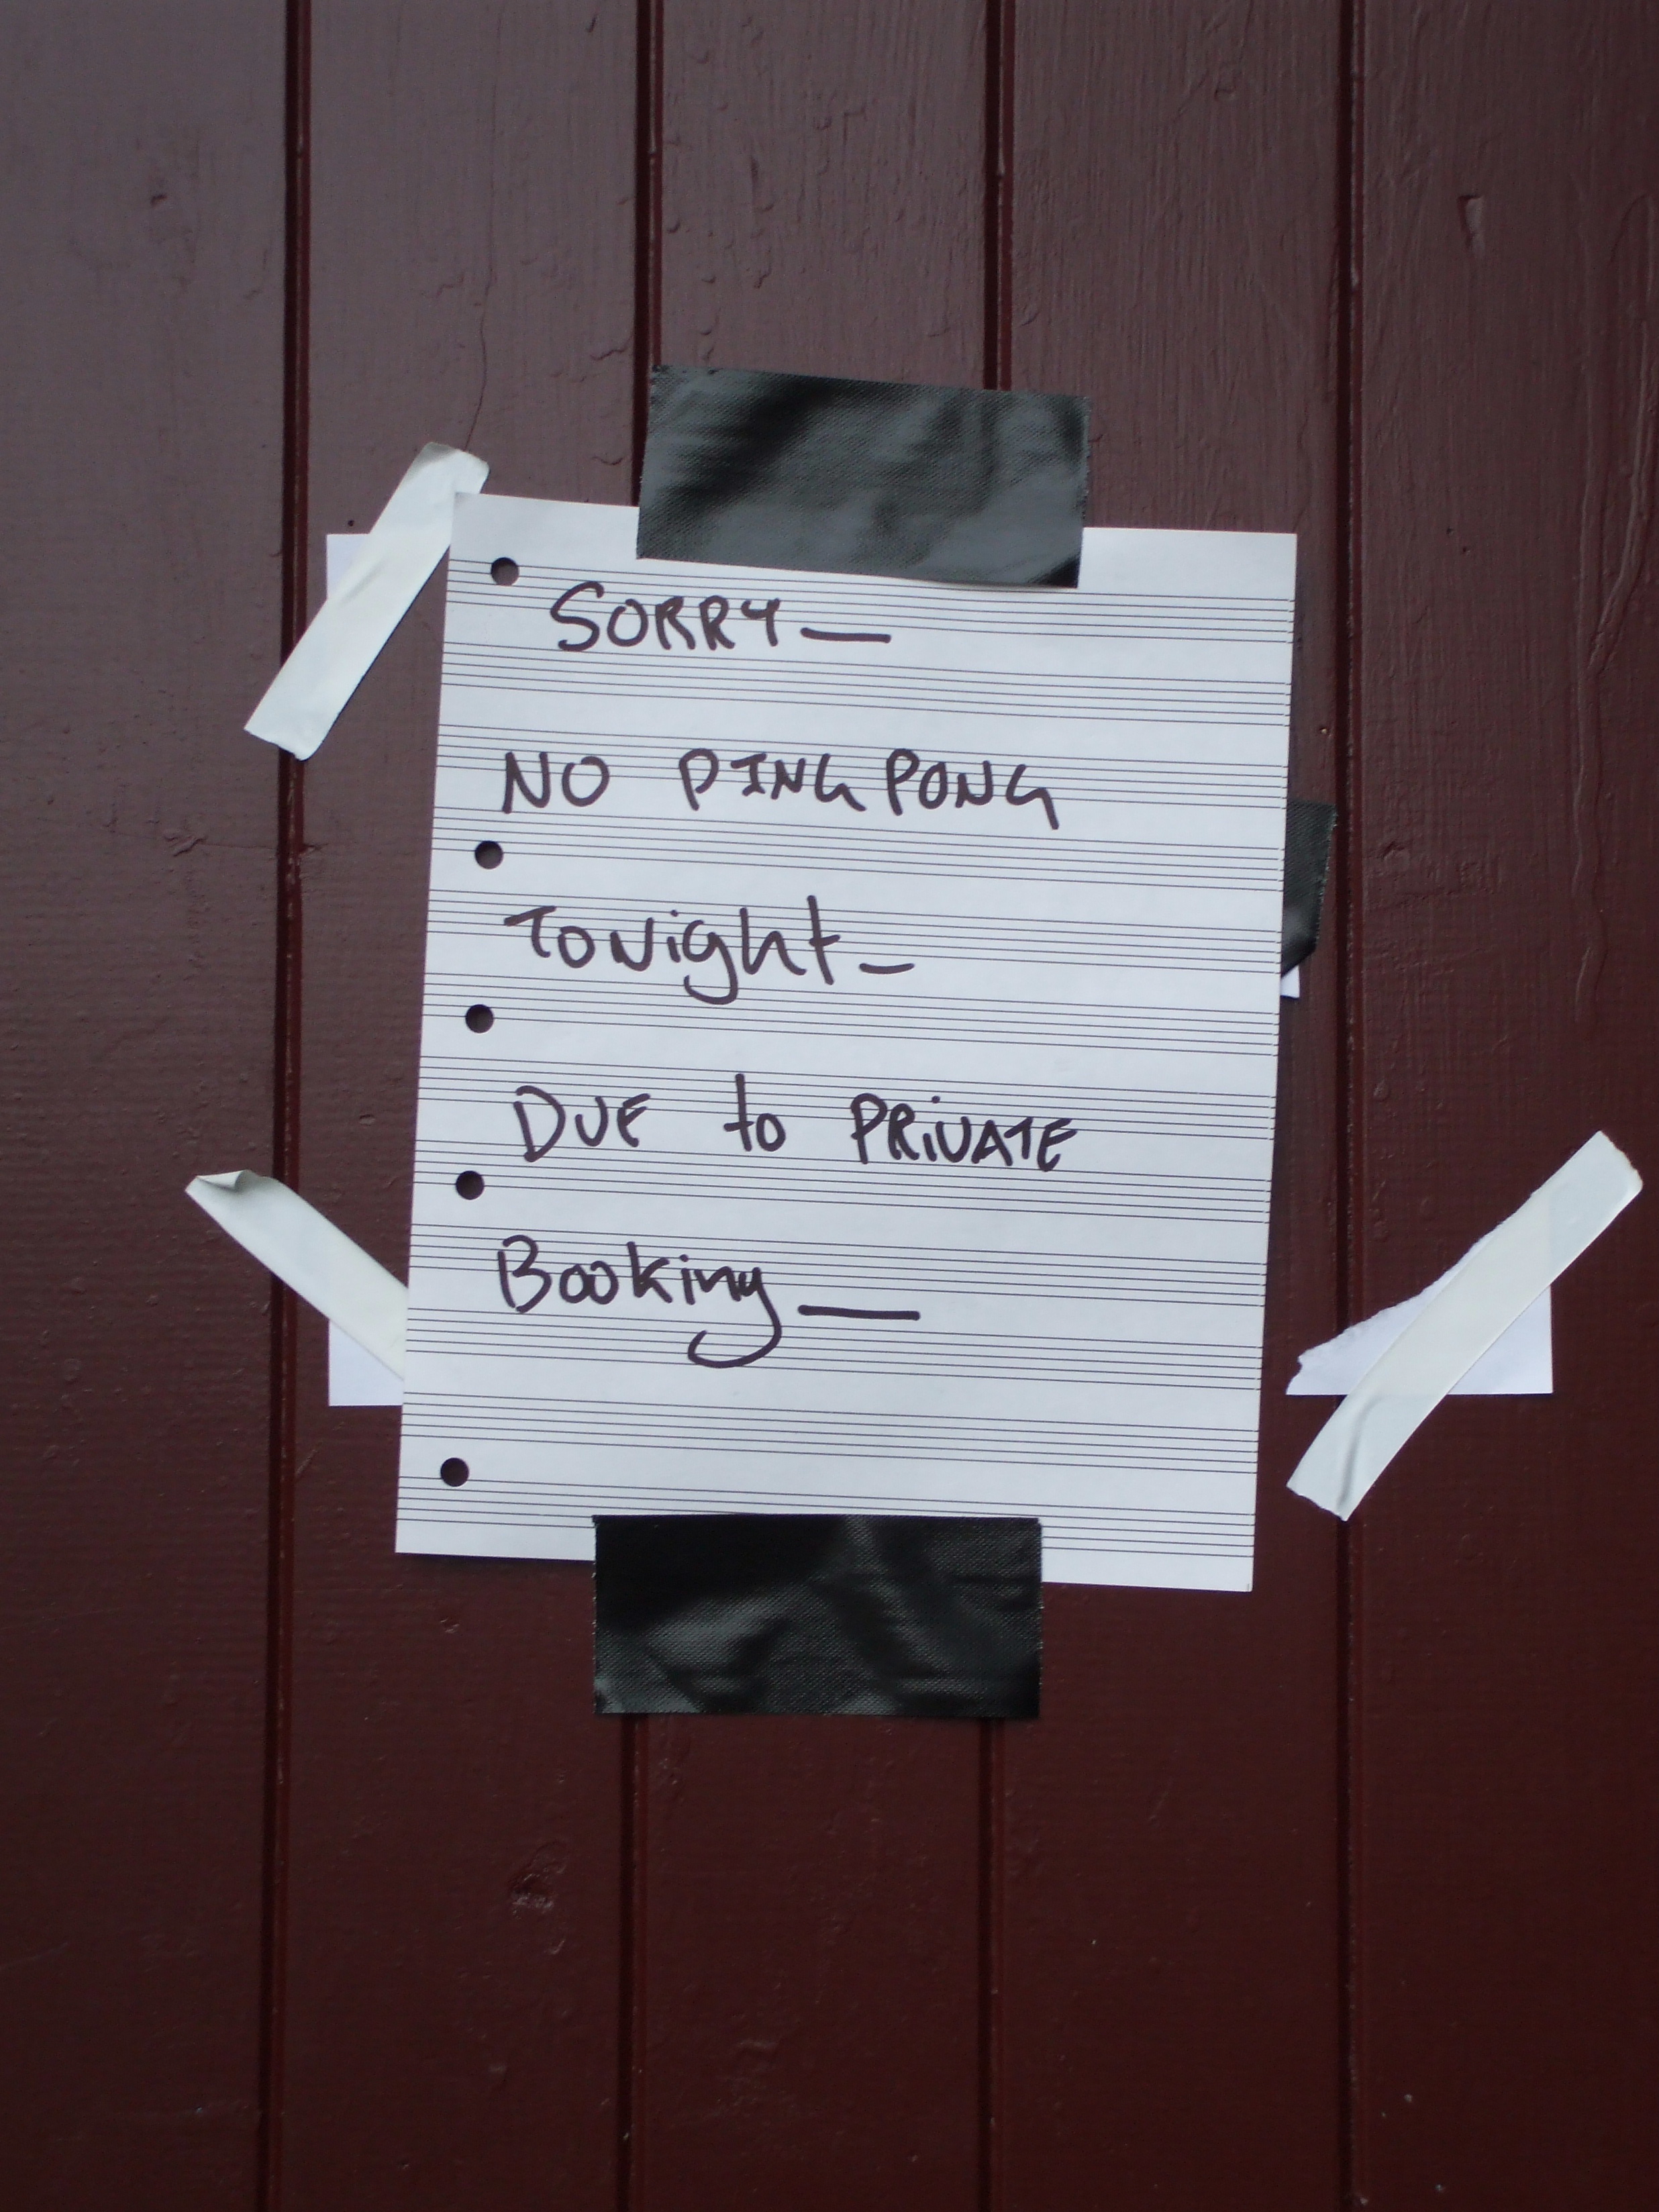 SORRY—
NO PING PONG
TONight—
DUE to PRiVATE
Booking—